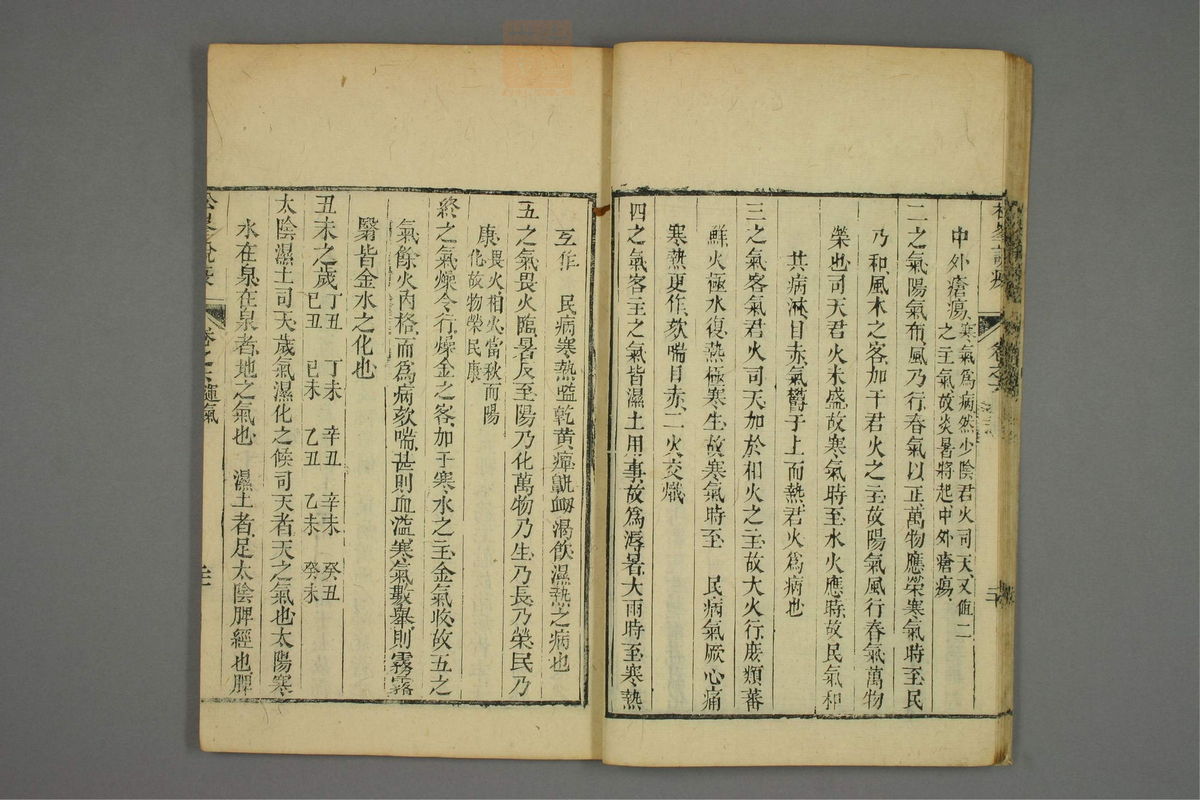 卷之六
中外瘡瘍寒氣爲病然少陰君火司天又值二
之主氣故炎暑將起中外瘡瘍
二之氣陽氣布風乃行春氣以正萬物應榮寒氣時至民
乃和風木之客加于君火之主故陽氣風行春氣萬物
榮也司天君火未盛故寒氣時至水火應時故民氣和
其病淋目赤氣鬱于上而熱君火爲病也
三之氣客氣君火司天加於相火之主故大火行庶類蕃
鮮火極水復熱極寒生故寒氣時至 民病氣厥心痛
寒熱更作欬喘目赤二火交熾
四之氣客主之氣皆濕土用事故爲溽暑大雨時至寒熱
互作 民病寒熱嗌乾黃癉鼽衂渴飲濕熱之病也
五之氣畏火臨暑反至陽乃化萬物乃生乃長乃榮民乃
康畏火相火當秋而陽
化故物榮民康
終之氣燥令行燥金之客加于寒水之主金氣收故五之
氣餘火內格而爲病欬喘甚則血溢寒氣數舉則霿霧
翳皆金水之化也
丑未之歲丁丑 丁未 辛丑 辛未 癸丑
巳丑 巳未 乙丑 乙未 癸未
太陰濕土司天歲氣濕化之候司天者天之氣也太陽寒
水在泉在泉者地之氣也 濕土者足太陰脾經也脾
卷之六 運氣